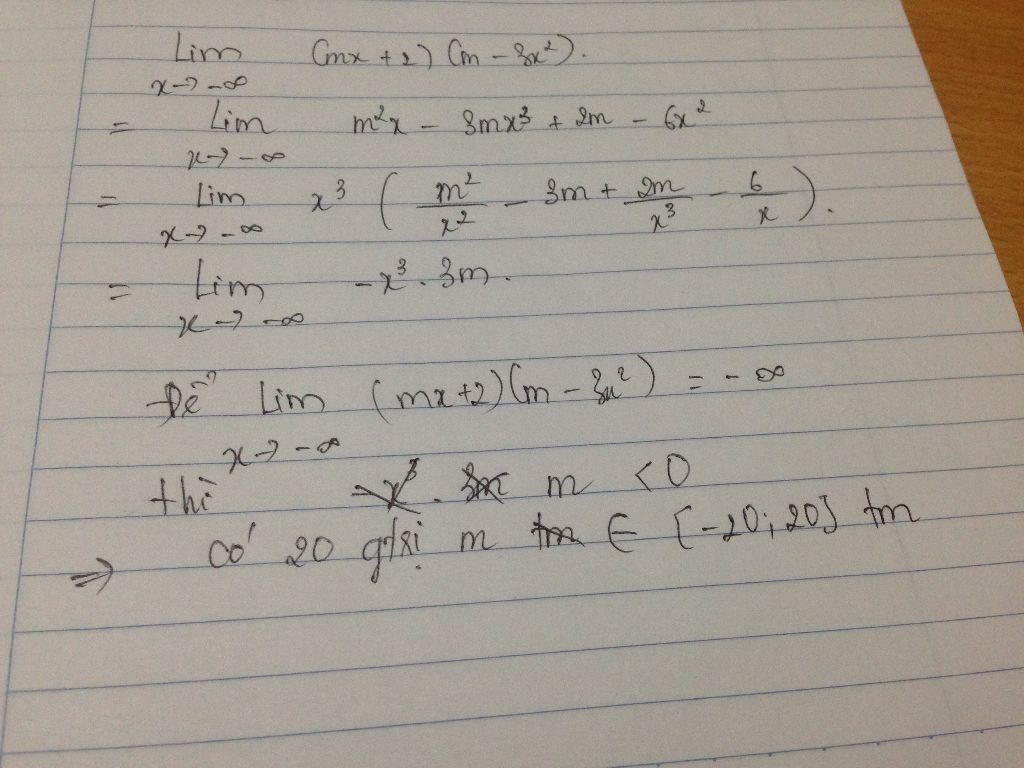 Lim (mx + 2) (m - 3x²).
x → -∞
= Lim m²x - 3mx³ + 2m - 6x²
x → -∞
= Lim x³ ( m²/x² - 3m + 2m/x³ - 6/x ).
x → -∞
= Lim -x³ . 3m .
x → -∞
Để Lim (mx+2)(m - 3x²) = - ∞
x → -∞
thì m < 0
⇒ có 20 gtrị m ∈ [-20; 20] tm